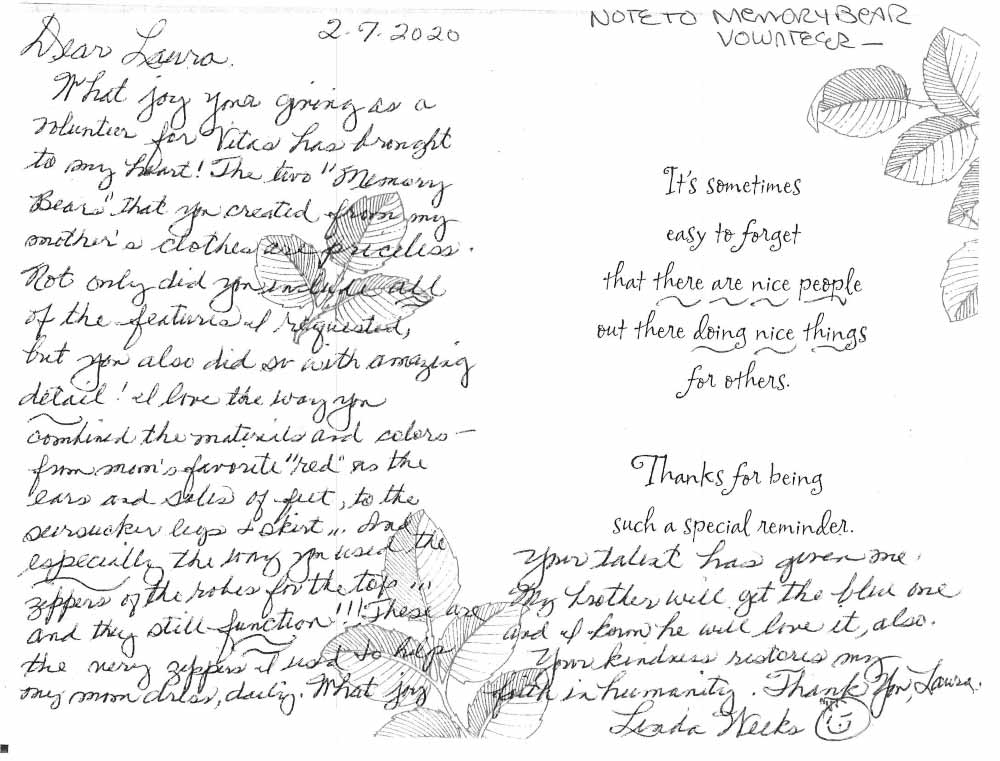 2.7.2020
Dear Laura.
What joy your giving as a
volunteer for Vitas has brought
to my heart! The two "Memory
Bears" that you created from my
mother's clothes are priceless.
Not only did you include all
of the features I requested,
but you also did so with amazing
detail! I love the way you
combined the materials and colors—
from mom's favorite "red" as the
ears and soles of feet, to the
seersucker legs & skirt... And
especially the way you used the
zippers of the robes for the tops...
and they still function!!! These are
the very zippers I used to help
my mom dress, daily. What joy
NOTE TO MEMORY BEAR
VOLUNTEER—
It's sometimes
easy to forget
that there are nice people
out there doing nice things
for others.
Thanks for being
such a special reminder.
Your talent has given me.
My brother will get the blue one
and I know he will love it, also.
Your kindness restores my
faith in humanity. Thank You, Laura.
Linda Weeks